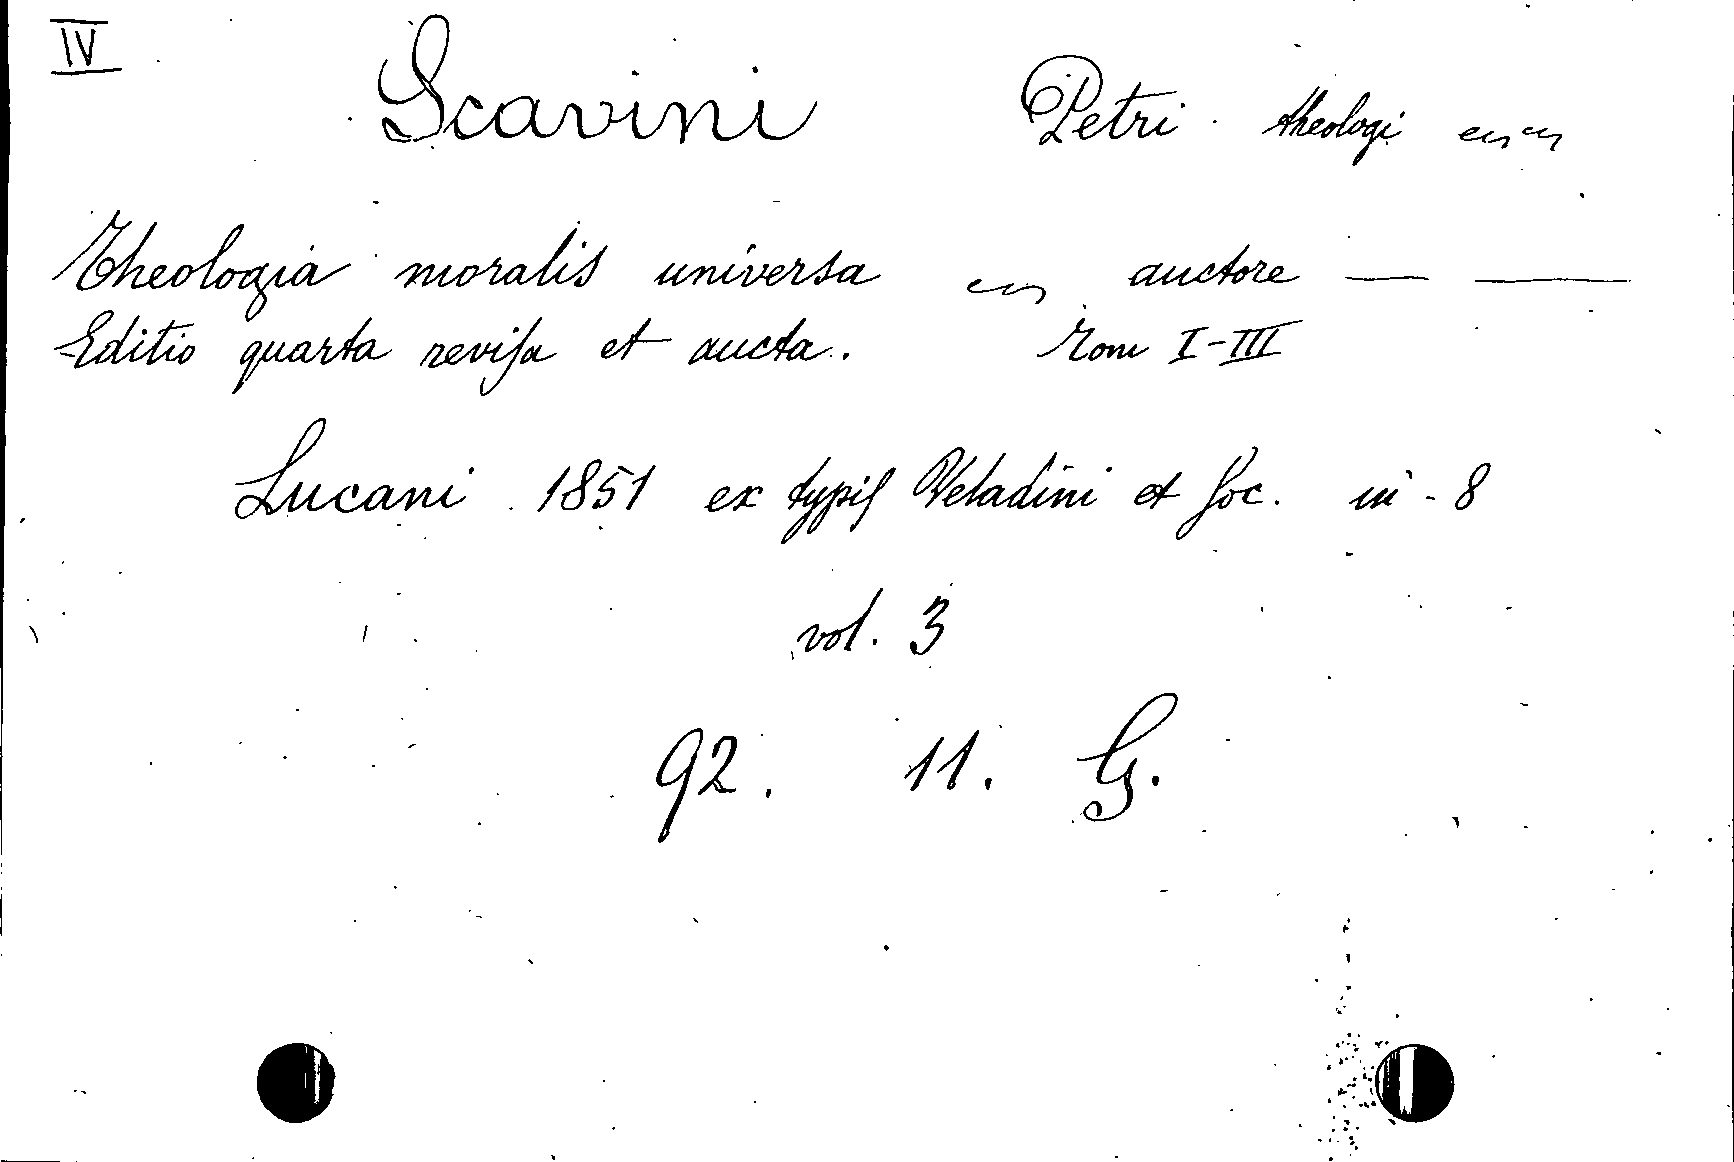 IV
Scavini Petri theologi
Theologia moralis universa auctore — —
Editio quarta revisa et aucta. Tom I-III
Lucani 1851 ex typis Veladini et Soc. in-8
vol. 3
92. 11. G.